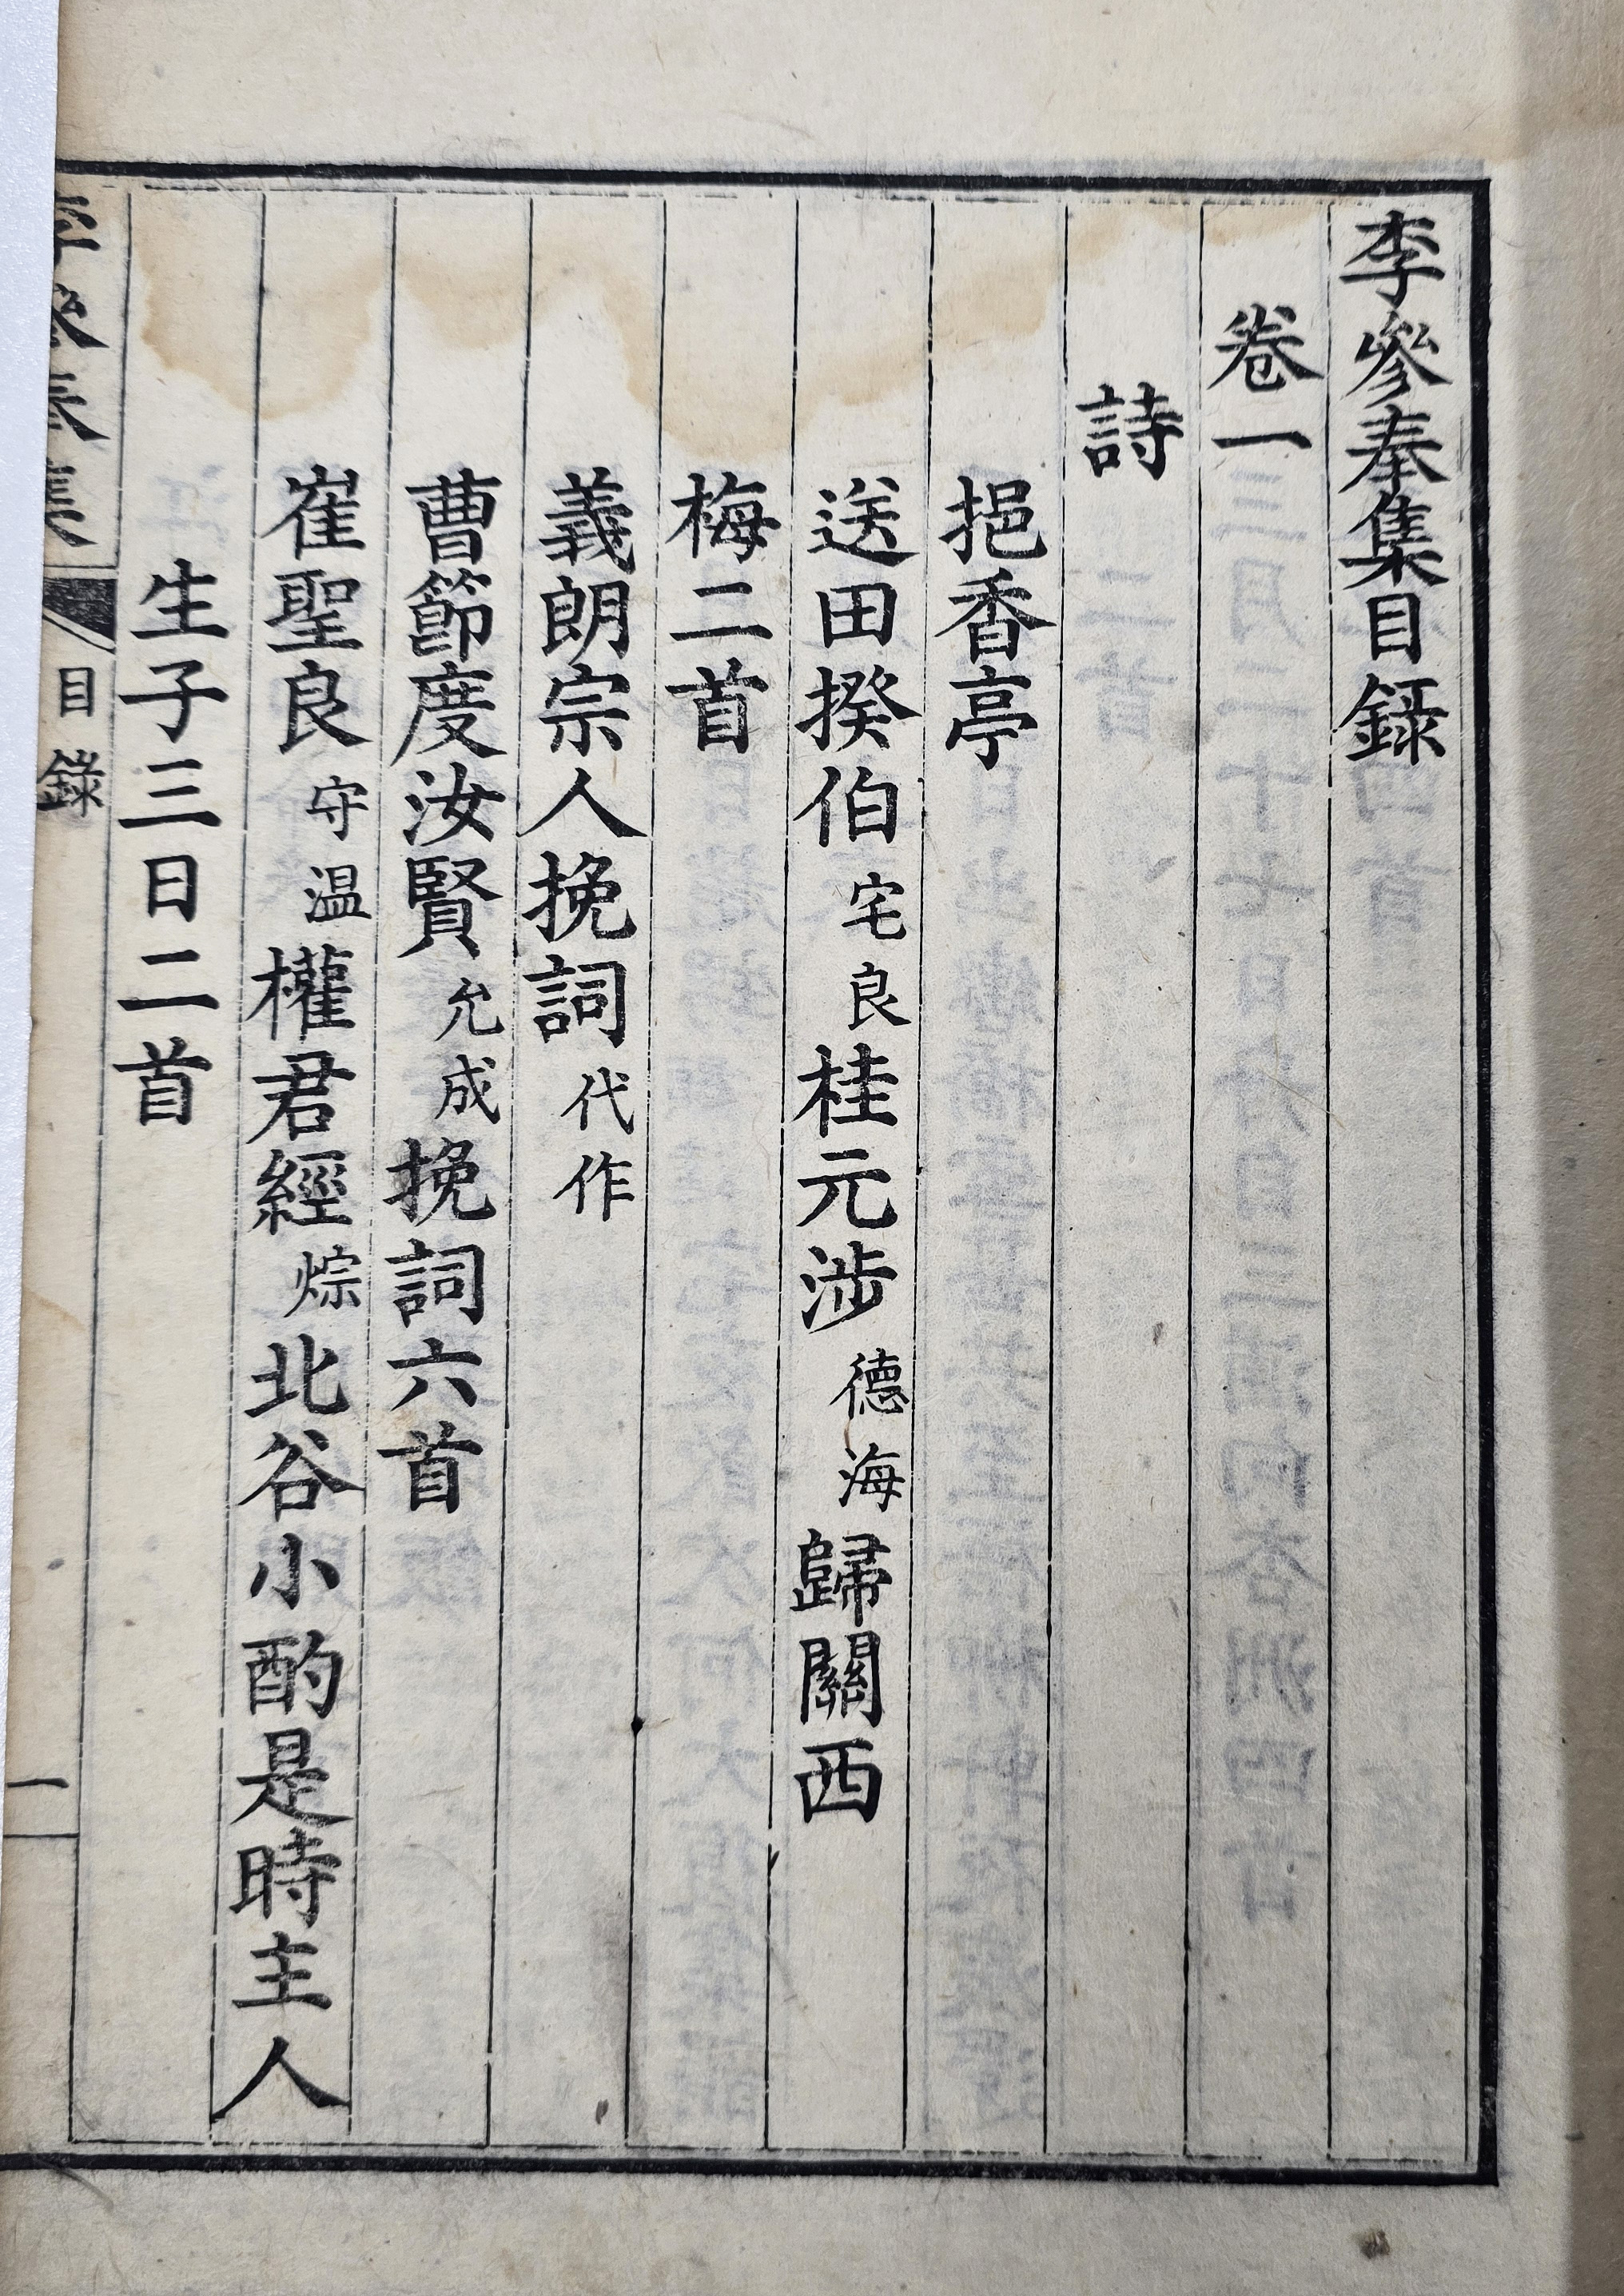 李參奉集目錄
卷一
詩
挹香亭
送田揆伯宅良桂元涉德海歸關西
梅二首
義朗宗人挽詞代作
曹節度汝賢允成挽詞六首
崔聖良守温權君經㥬北谷小酌是時主人
生子三日二首
李參奉集
目錄
一